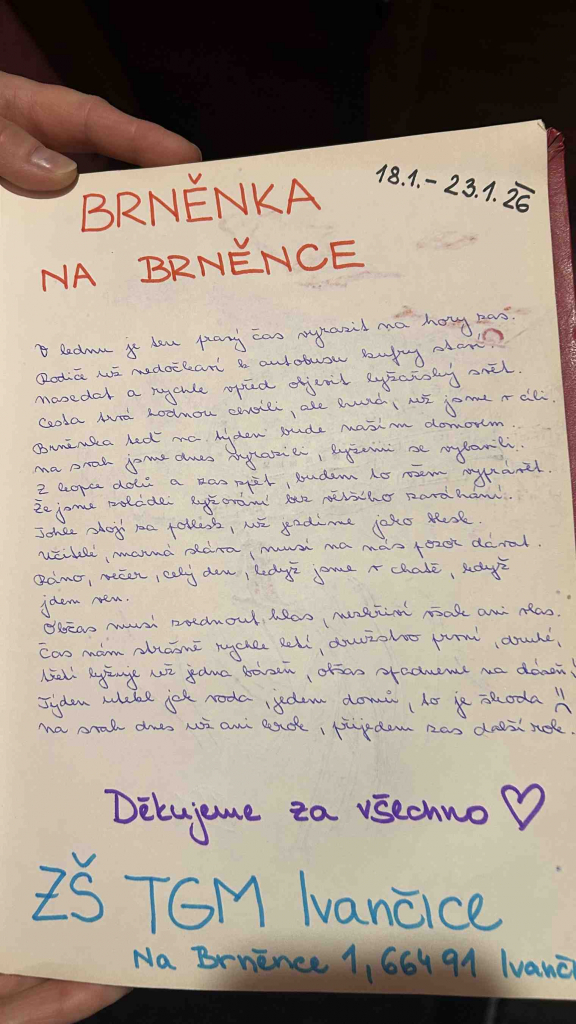 18.1. - 23.1. 26
BRNĚNKA
NA BRNĚNCE
V lednu je ten pravý čas vyrazit na hory zas.
Rodiče už nedočkaví k autobusu kufry staví.
nasedat a rychle vpřed objevit lyžařský svět.
Cesta trvá hodnou chvíli, ale hurá, už jsme v cíli.
Brněnka teď na týden bude naším domovem.
na svah jsme dnes vyrazili, lyžemi se vybavili.
Z kopce dolů a zas zpět, budem to všem vyprávět.
Že jsme zvládli lyžování bez většího zaváhání.
Tohle stojí za potlesk, už jezdíme jako blesk.
Učitelé, marná sláva, musí na nás pozor dávat.
Ráno, večer, celý den, když jsme v chatě, když
jdem ven.
Občas musí zvednout hlas, nezkřiví však ani vlas.
Čas nám strašně rychle letí, družstvo první, druhé,
třetí lyžuje už jedna báseň, občas spadneme na dáseň!
Týden utekl jak voda, jedem domů, to je škoda !!
na svah dnes už ani krok, přijedem zas další rok.
Děkujeme za všechno ♡
ZŠ TGM Ivančice
Na Brněnce 1, 664 91 Ivanč